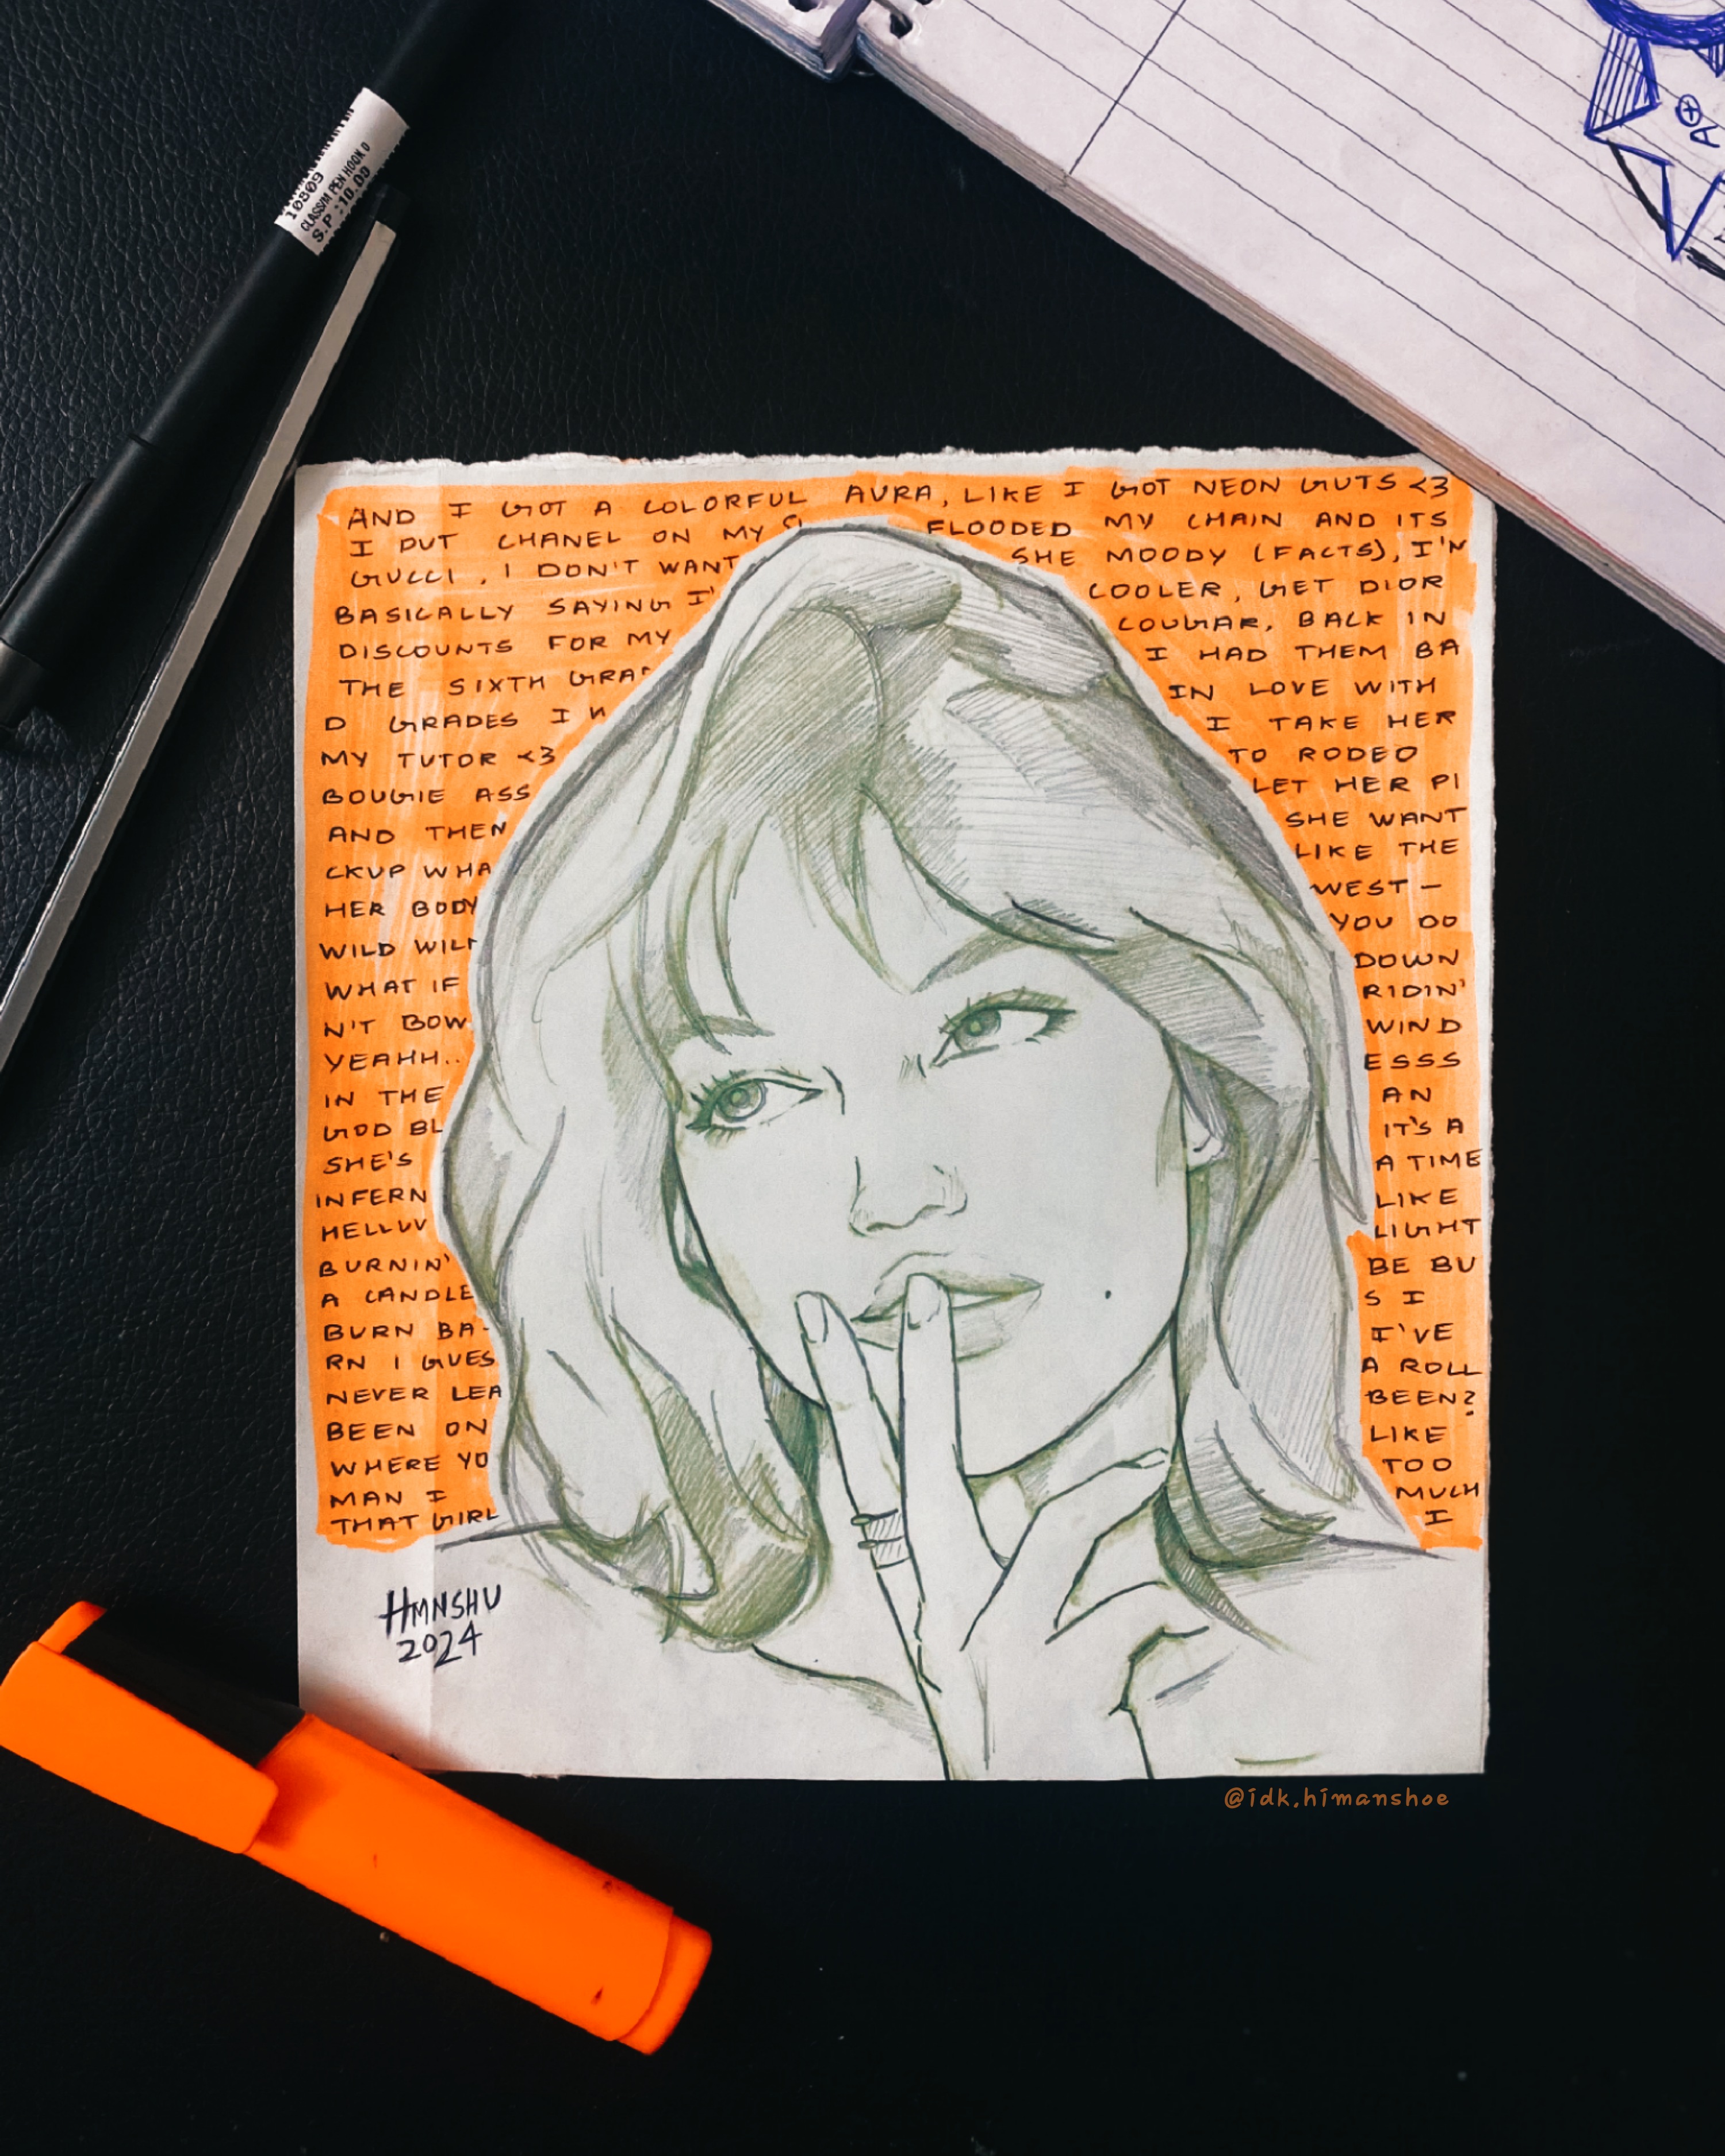 10809
CLASSIM PEN HOOK 0
S.P :10.00
AND I GOT A COLORFUL AURA, LIKE I GOT NEON GUTS <3
I PUT CHANEL ON MY FLOODED MY CHAIN AND ITS
GUCCI, I DON'T WANT SHE MOODY (FACTS), I'M
BASICALLY SAYING I' COOLER, GET DIOR
DISCOUNTS FOR MY COUGAR, BACK IN
THE SIXTH GRA I HAD THEM BA
D GRADES IN IN LOVE WITH
MY TUTOR <3 I TAKE HER
BOUGIE ASS TO RODEO
AND THEN LET HER PI
CKUP WHA SHE WANT
HER BODY LIKE THE
WILD WILD WEST –
WHAT IF YOU DO
N'T BOW DOWN
YEAHH.. RIDIN'
IN THE WIND
GOD BL ESSS
SHE'S AN
INFERN IT'S A
HELLUV A TIME
BURNIN' LIKE
A CANDLE LIGHT
BURN BA- BE BU
RN I GUES S I
NEVER LEA I'VE
BEEN ON A ROLL
WHERE YO BEEN?
MAN I LIKE
THAT GIRL TOO
MUCH
I
HMNSHU
2024
@idk.himanshoe